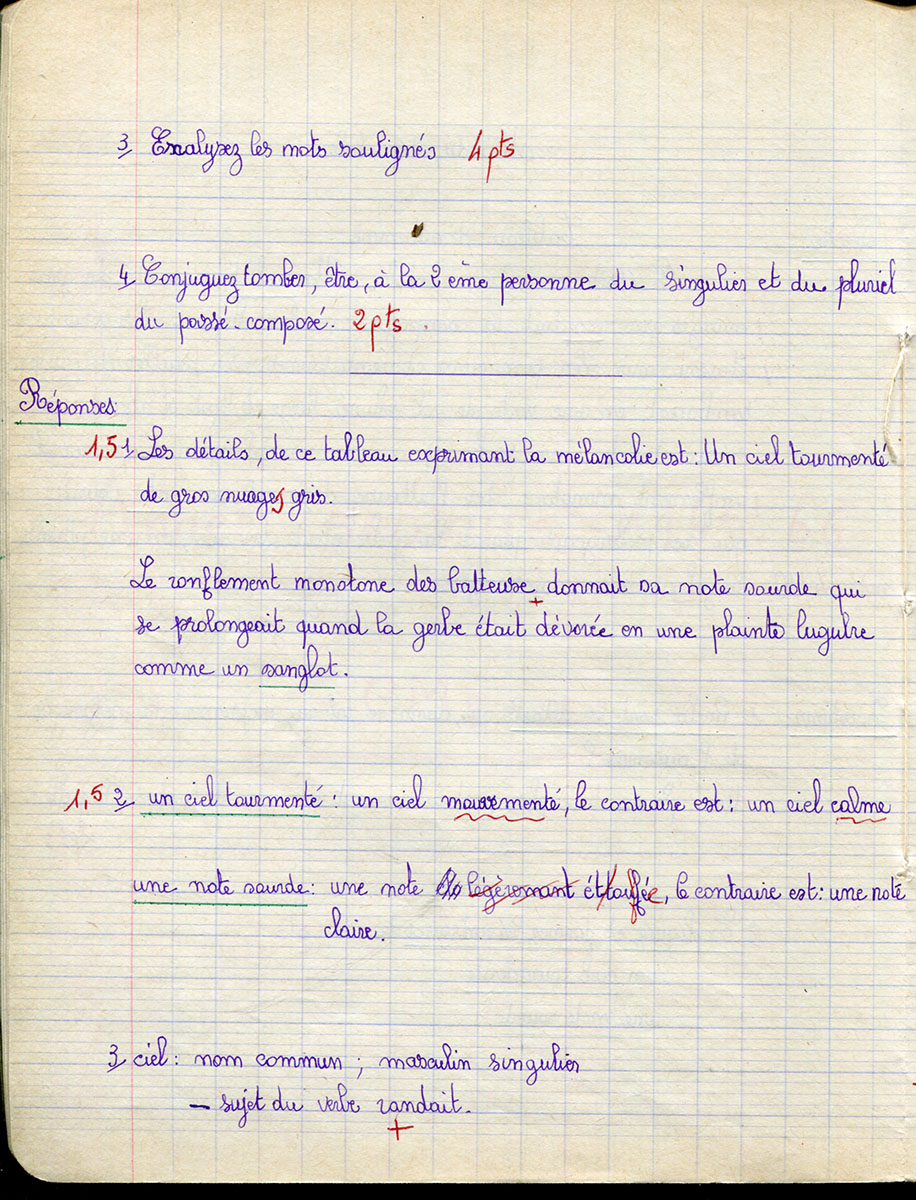 3 Analysez les mots soulignés 4 pts
4 Conjuguez tomber, être, à la 2 ème personne du singulier et du pluriel
du passé-composé. 2 pts.
Réponses:
1,5 1 Les détails, de ce tableau exprimant la mélancolie est: Un ciel tourmenté
de gros nuages gris.
Le ronflement monotone des batteuse donnait sa note sourde qui
se prolongeait quand la gerbe était dévorée en une plainte lugubre
comme un sanglot.
1,5 2 un ciel tourmenté: un ciel mouvementé, le contraire est: un ciel calme
une note sourde: une note légèremant étouffée, le contraire est: une note
claire.
3 ciel: nom commun; masculin singulier
- sujet du verbe randait.